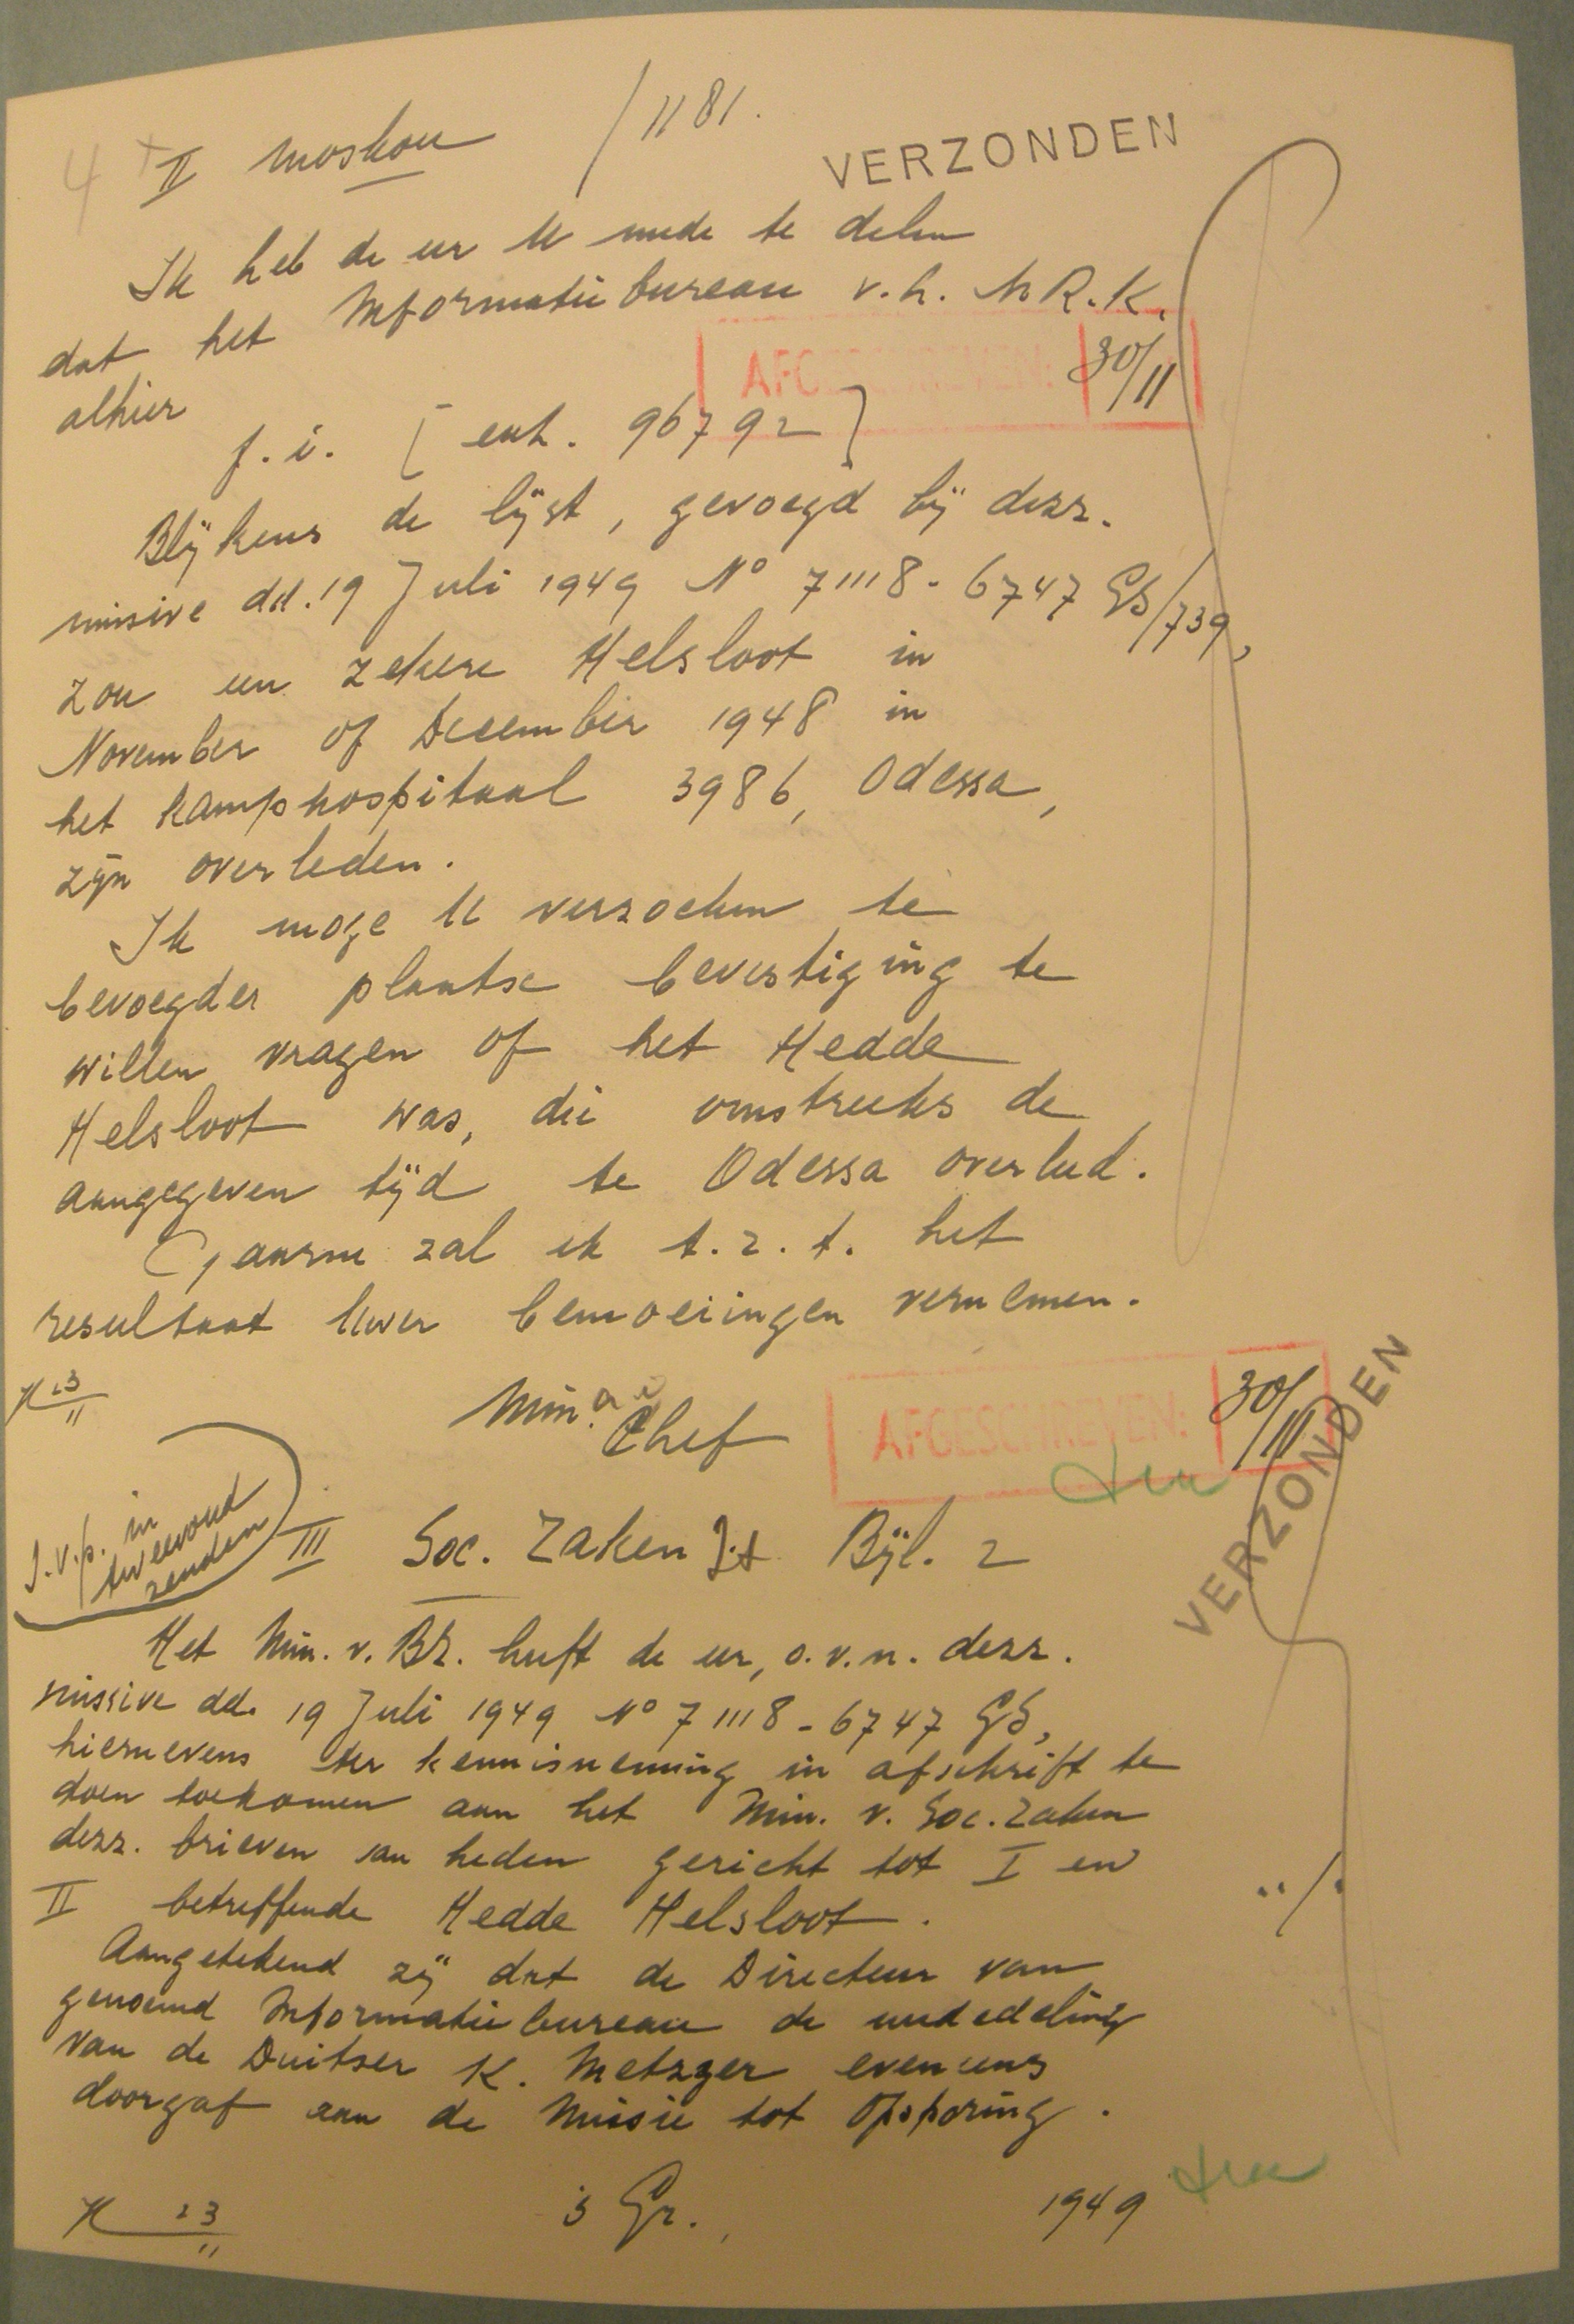 4 +
II Moskou / 1181.
VERZONDEN
Ik heb de eer U mede te delen
dat het Informatiebureau v.h. N.R.K.
AFGESCHREVEN: 30/11
alhier
f. i. [ ent. 96792 ]
Blijkens de lijst, gevoegd bij dezz.
missive dd. 19 Juli 1949 No 71118-6747 GS/739,
zou een zekere Helsloot in
November of December 1948 in
het kamphospitaal 3986, Odessa,
zijn overleden.
Ik moge U verzoeken te
bevoegder plaatse bevestiging te
willen vragen of het Hedde
Helsloot was, die omstreeks de
aangegeven tijd te Odessa overleed.
Gaarne zal ik t.z.t. het
resultaat Uwer bemoeiingen vernemen.
H 23/11
Min. Chef
AFGESCHREVEN: 30/11
VERZONDEN
S.v.p. in
tweevoud
zenden
III Soc. Zaken Bijl. 2
Het Min. v. BZ. heeft de eer, o.v.n. dezz.
missive dd. 19 Juli 1949 No 71118-6747 GS,
hiernevens ter kennisneming in afschrift te
doen toekomen aan het Min. v. Soc. Zaken
dezz. brieven van heden gericht tot I en
II betreffende Hedde Helsloot.
Aangetekend zij dat de Directeur van
genoemd Informatiebureau de mededeling
van de Duitser K. Metzger eveneens
doorgaf aan de Missie tot Opsporing.
H 23/11
's Gr., 1949